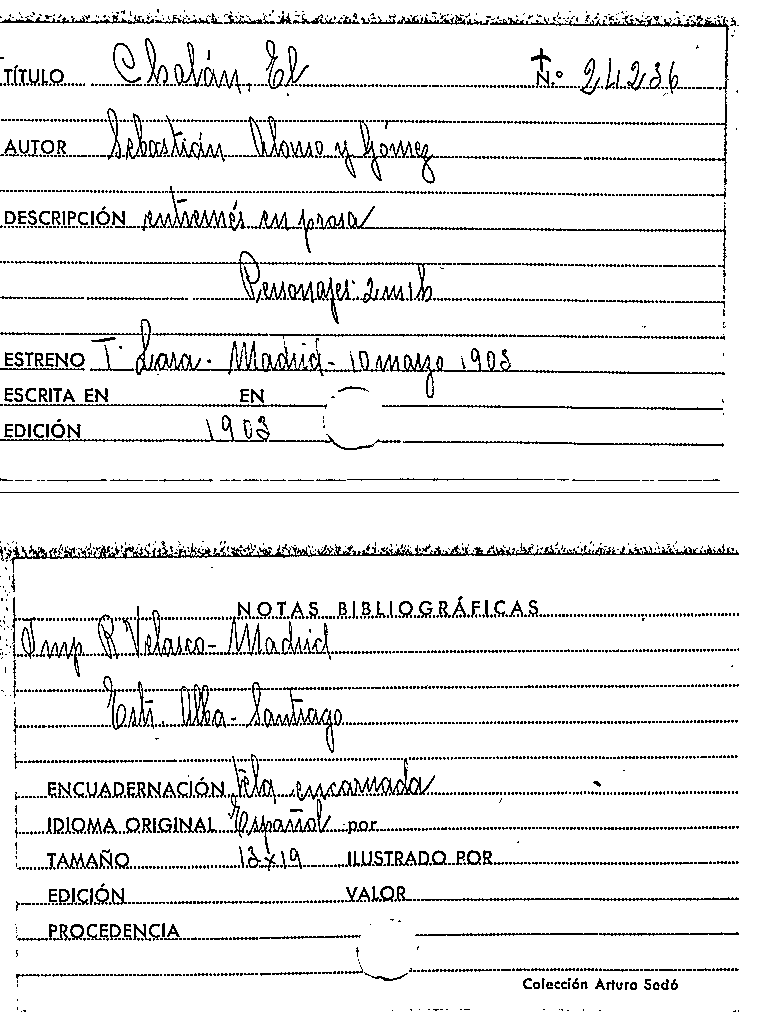 TÍTULO Chalán, El N.º 24236
AUTOR Sebastián Alonso y Gómez
DESCRIPCIÓN entremés en prosa
Personajes: 2m 1h
ESTRENO T. Lara - Madrid - 10 marzo 1903
ESCRITA EN EN
EDICIÓN 1903
NOTAS BIBLIOGRÁFICAS
Imp R Velasco - Madrid
Estr. Alba - Santiago
ENCUADERNACIÓN tela encarnada
IDIOMA ORIGINAL Español por
TAMAÑO 13x19 ILUSTRADO POR
EDICIÓN VALOR
PROCEDENCIA
Colección Arturo Sedó